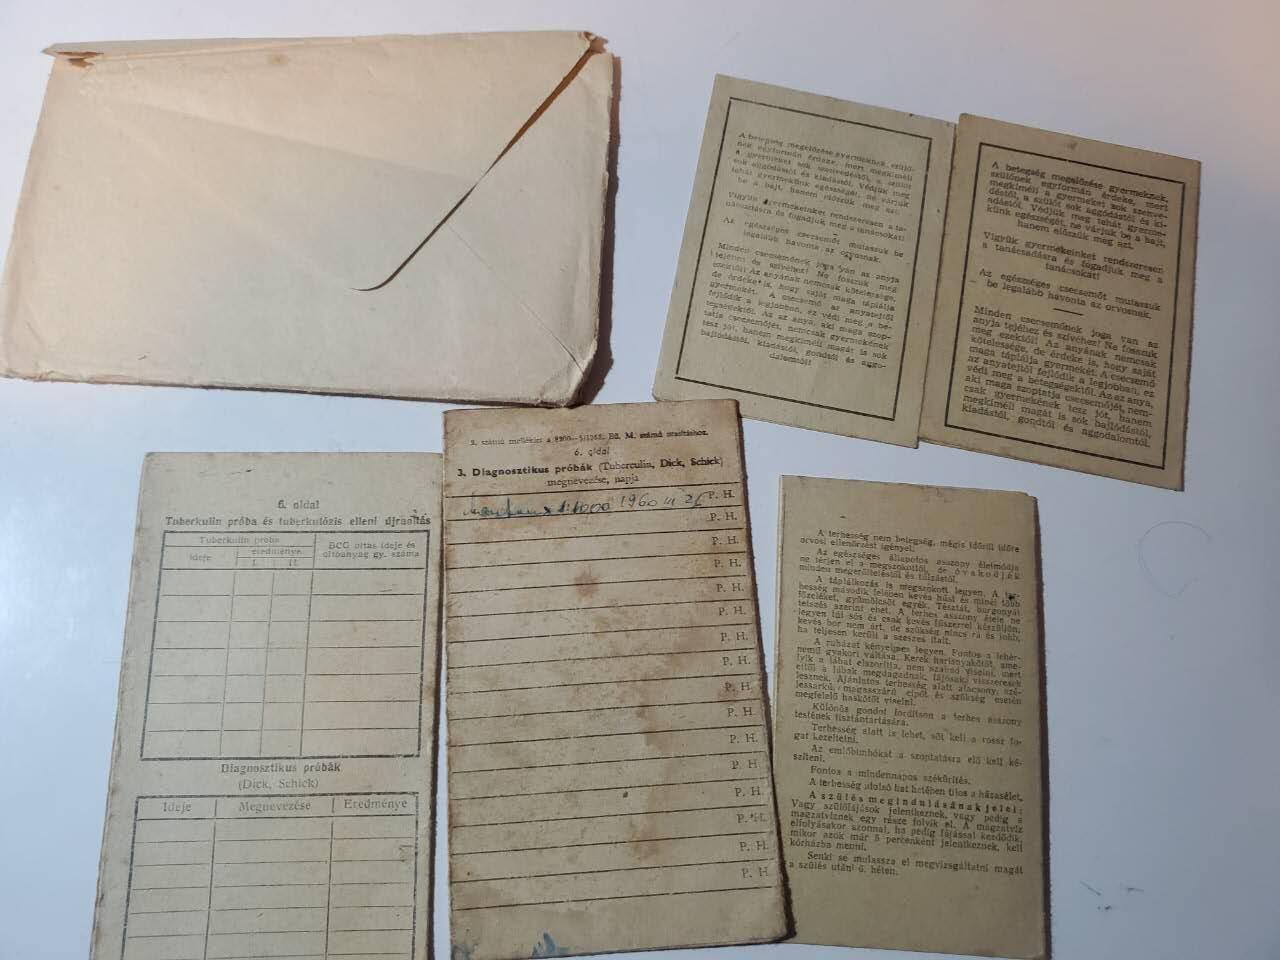 A betegség megelőzése gyermeknek, szülő-
nek egyformán érdeke, mert megkíméli
a gyermeket sok szenvedéstől, a szülőt
sok aggódástól és kiadástól. Védjük meg
tehát gyermekünk egészségét, ne várjuk
be a bajt, hanem előzzük meg azt.
Vigyük gyermekeinket rendszeresen a ta-
nácsadásra és fogadjuk meg a tanácsokat!
Az egészséges csecsemőt mutassuk be
legalább havonta az orvosnak.
Minden csecsemőnek joga van az anyja
tejéhez és szívéhez! Ne fosszuk meg
ezektől! Az anyának nemcsak kötelessége,
de érdeke is, hogy saját maga táplálja
gyermekét. A csecsemő az anyatejtől
fejlődik a legjobban, ez védi meg a be-
tegségektől. Az az anya, aki maga szop-
tatja csecsemőjét, nemcsak gyermekének
tesz jót, hanem megkíméli magát is sok
bajlódástól, kiadástól, gondtól és aggo-
dalomtól!
A betegség megelőzése gyermeknek,
szülőnek egyformán érdeke, mert
megkíméli a gyermeket sok szenve-
déstől, a szülőt sok aggódástól és ki-
adástól. Védjük meg tehát gyerme-
künk egészségét, ne várjuk be a bajt,
hanem előzük meg azt.
Vigyük gyermekeinket rendszeresen
a tanácsadásra és fogadjuk meg a
tanácsokat!
Az egészséges csecsemőt mutassuk
be legalább havonta az orvosnak.
Minden csecsemőnek joga van az
anyja tejéhez és szívéhez! Ne fosszuk
meg ezektől! Az anyának nemcsak
kötelessége, de érdeke is, hogy saját
maga táplálja gyermekét. A csecsemő
az anyatejtől fejlődik a legjobban, ez
védi meg a betegségektől. Az az anya,
aki maga szoptatja csecsemőjét, nem-
csak gyermekének tesz jót, hanem
megkíméli magát is sok bajlódástól,
kiadástól, gondtól és aggodalomtól.
6. oldal
Tuberkulin próba és tuberkulózis elleni újraoltás
Tuberkulin próba
Ideje
eredménye
I.
II.
BCG oltás ideje és
oltóanyag gy. száma
Diagnosztikus próbák
(Dick, Schick)
Ideje
Megnevezése
Eredménye
2. számú melléklet a 8200— Eü. M. számú utasításhoz.
6. oldal
3. Diagnosztikus próbák (Tuberculin, Dick, Schick)
megnevezése, napja
1:1000 1960 III 26 P. H.
P. H.
P. H.
P. H.
P. H.
P. H.
P. H.
P. H.
P. H.
P. H.
P. H.
P. H.
P. H.
P. H.
P. H.
P. H.
A terhesség nem betegség, mégis időről időre
orvosi ellenőrzést igényel.
Az egészséges állapotos asszony életmódja
ne térjen el a megszokottól, de óvakodjék
minden megerőltetéstől és túlzástól.
A táplálkozás is megszokott legyen. A ter-
hesség második felében kevés húst és minél több
főzeléket, gyümölcsöt egyék. Tésztát, burgonyát
tetszés szerint ehet. A terhes asszony étele ne
legyen túl sós és csak kevés fűszerrel készüljön,
kevés bor nem árt, de szükség nincs rá és jobb,
ha teljesen kerüli a szeszes italt.
A ruházat kényelmes legyen. Fontos a fehér-
nemű gyakori váltása. Kerek harisnyakötőt, ame-
lyik a lábat elszorítja, nem szabad viselni, mert
ettől a lábak megdagadnak, fájósak, visszeresek
lesznek. Ajánlatos terhesség alatt alacsony, szé-
lessarkú, magasszárú cipőt és szükség esetén
megfelelő haskötőt viselni.
Különös gondot fordítson a terhes asszony
testének tisztántartására.
Terhesség alatt is lehet, sőt kell a rossz fo-
gat kezeltetni.
Az emlőbimbókat a szoptatásra elő kell ké-
szíteni.
Fontos a mindennapos székürítés.
A terhesség utolsó hat hetében tilos a házasélet.
A szülés megindulásának jelei:
Vagy szülőfájások jelentkeznek, vagy pedig a
magzatvíznek egy része folyik el. A magzatvíz
elfolyásakor azonnal, ha pedig fájással kezdődik,
mikor azok már 5 percenként jelentkeznek, kell
kórházba menni.
Senki se mulassza el megvizsgáltatni magát
a szülés utáni 6. héten.